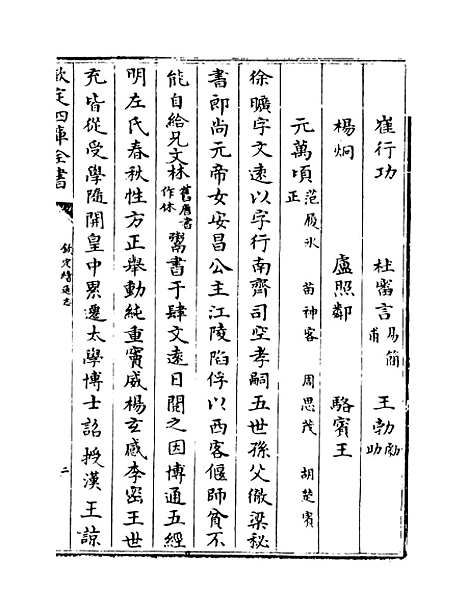 崔行功 杜審言 易簡 甫 王勃 勮 助
楊炯 盧照鄰 駱賓王
元萬頃 正 范履氷 苗神客 周思茂 胡楚賓
徐曠字文遠以字行南齊司空孝嗣五世孫父徹梁秘
書郎尚元帝女安昌公主江陵陷俘以西客偃師貧不
能自給兄文林 舊唐書作休 鬻書于肆文遠日閱之因博通五經
明左氏春秋性方正舉動純重竇威楊玄感李宻王世
充皆從受學隨開皇中累遷太學博士詔授漢王諒
欽定四庫全書 欽定續通志 二